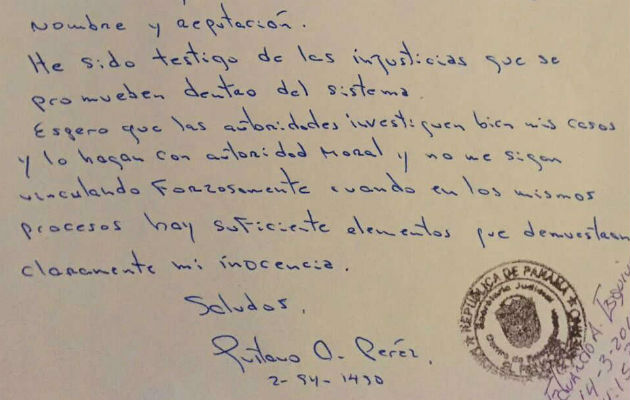 Nombre y reputación.
He sido testigo de las injusticias que se
promueben dentro del sistema.
Espero que las autoridades investiguen bien mis casos
y lo hagan con autoridad Moral y no me sigan
vinculando Forzosamente cuando en los mismos
procesos hay suficiente elementos que demuestran
claramente mi inocencia.
Saludos,
Gustavo A. Peréz.
2-84-1430
REPÚBLICA DE PANAMÁ
Secretaría Judicial
Centro de
EL
14-3-20